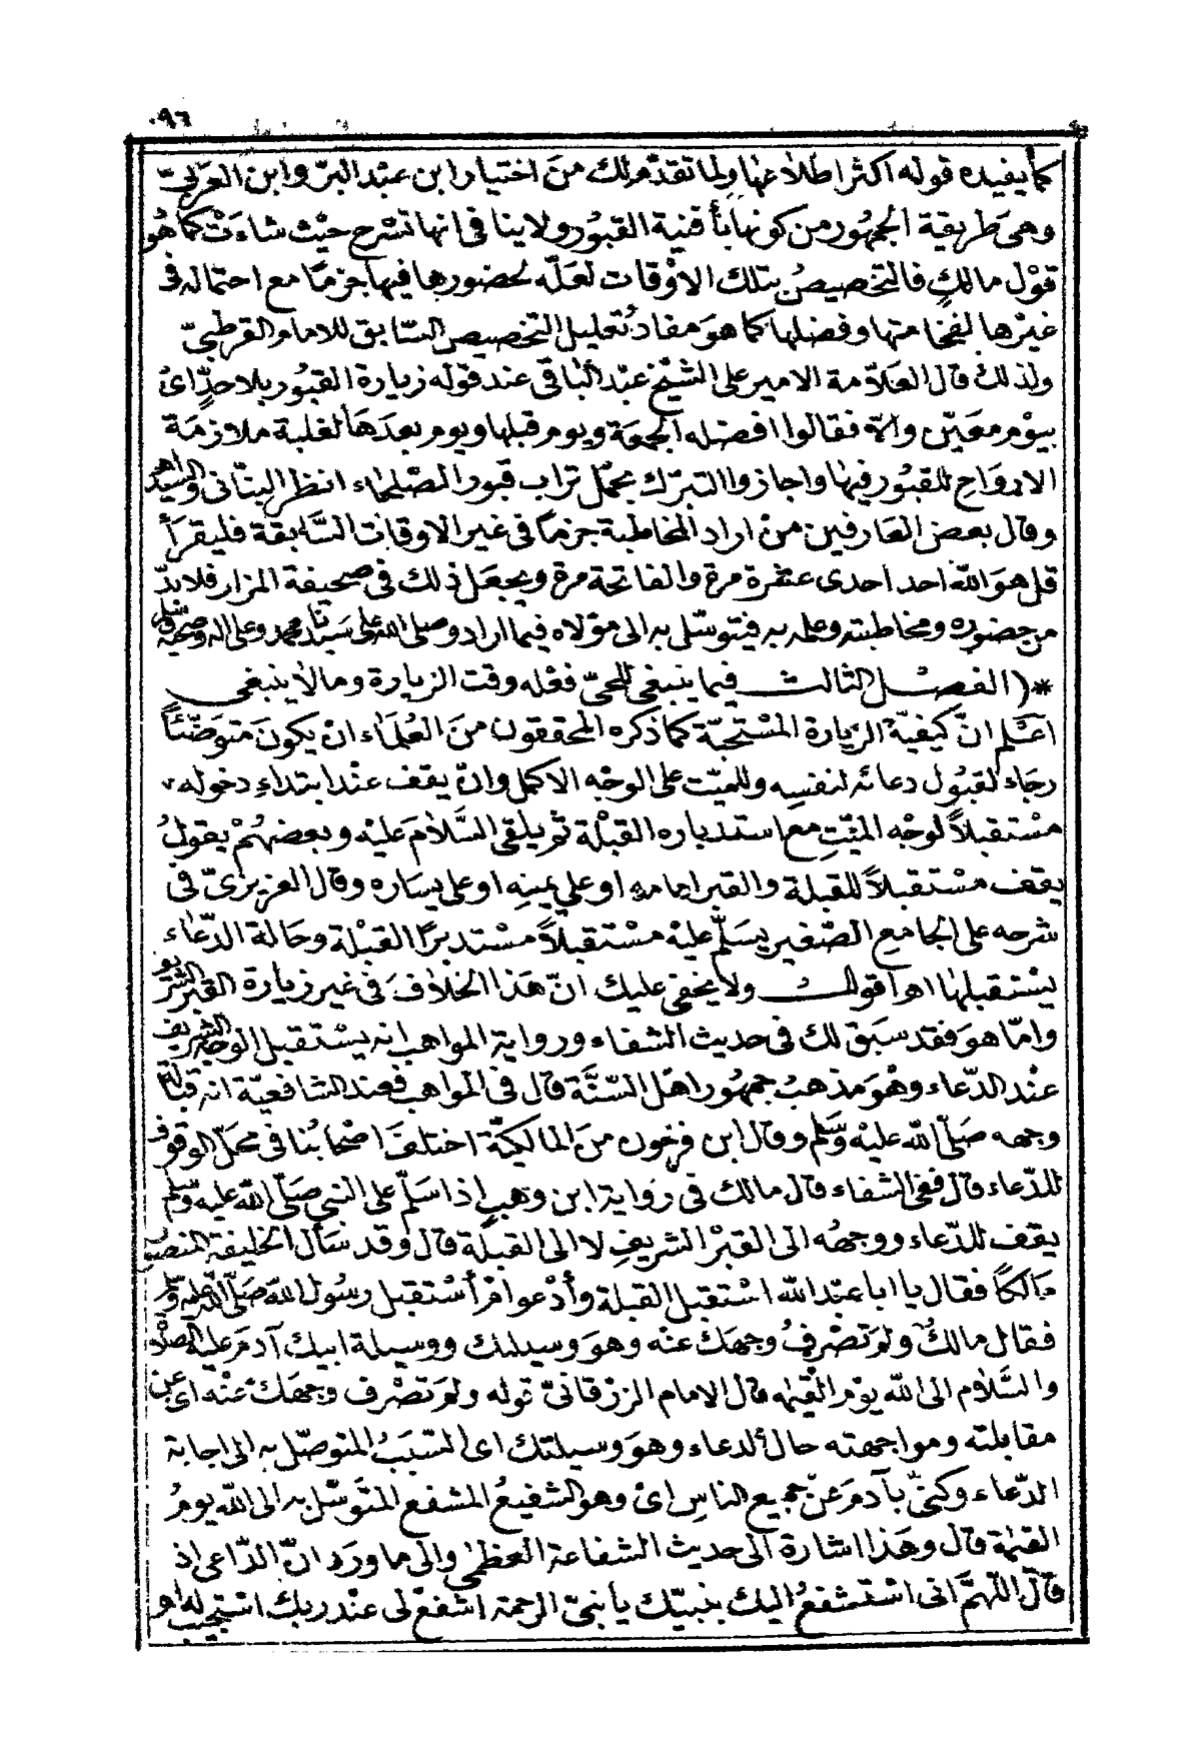 ٩٦
كما يفيده قوله اكثر اطلاعها ولما تقدم لك من اختيار ابن عبد البرّ وابن العربيّ
وهى طريقة الجمهور من كونها بأفنية القبور ولا ينافى انها تسرح حيْث شاءت كما هو
قوْل مالك فالتخصيصُ بتلك الاوْقات لعَلّه لحضورها فيها جزمًا مع احتماله فى
غيرْها لفخامتها وفضلها كما هوَ مفاد تعليل التخصيص السّابق للامام القرطبيّ
ولذلك قال العَلاّمة الامير على الشيْخ عبْد الباقى عند قوله زيارة القبُور بلا حدٍّ اىْ
بيوْم معَيّن والا فقالوا افضله الجمعَة ويوم قبلها ويوم بعدَهَا لغلبة ملازمَة
الارواحِ للقبُور فيها واجازوا التبرّك بحمْل تراب قبور الصّلحاء انظر البنّانى والسّيد اهـ
وقال بعض العَارفين منْ اراد المخاطبة جزمًا فى غير الاوقات السَّابقة فليقرَأ
قل هوَ اللّه احد احدى عشرة مرة والفاتحة مرة ويجعل ذلك فى صحيفة المزار فلا بدّ
من حضوره ومخاطبته وعلمه به فيتوسّل به الى موْلاه فيما اراد وصلى الله على سَيدنا محمد وعلى اله وصحبه وسلم
*( الفصْـل الثالث ـ فيما ينبغى للحىّ فعْله وقت الزيارة وما لا ينبغى
اعْلم انّ كيفيّة الزيارة المسْتحبّة كما ذكره المحققون منَ العُلَمَاء انْ يكونَ متوَضّئاً
رجَاء لقبُول دعائه لنفسِه وللميّت على الوجْه الاكمل وانْ يقف عنْد ابتداءِ دخوله
مسْتقبلاً لوجْه الميّتِ مع استدباره القبْلة ثم يلقى السَّلامَ عليْه وبعضهُمْ يقولُ
يقف مسْتقبلاً للقبلة والقبر امامه او على يمينِه او على يسَاره وقال العزيزىّ فى
شرحه على الجامع الصّغير يسَلّم عليْه مسْتقبلاً مسْتدبرًا القبْلة وحَالة الدّعَاء
يسْتقبلها اهـ اقولـ ولا يخفى عليك انّ هَذا الخلافَ فى غير زيارة القبر الشريف
وامّا هوَ فقد سبَق لك فى حديث الشفاء ورواية المواهب انه يسْتقبل الوجه الشريف
عنْد الدّعاء وهْوَ مذهبُ جمهُور اهْل السّنَّة قال فى المواهب فعند الشافعيّة انه قبالة
وجهه صَلّى اللّه عليْه وَسَلم وقال ابن فرْحون منَ المالكيّة اختلفَ اصْحابُنا فى محَلّ الوقوف
للدّعاء قال ففى الشفاء قال مالك فى روَاية ابن وهْبٍ اذا سَلّم على النبىّ صَلّى اللّه عليه وسلم
يقف للدّعاء ووجهُه الى القبْر الشريفِ لا الى القبلَة قال وقد سَأل الخليفة المنصور
مَالكًا فقال يا ابا عبْد الله اسْتقبل القبلة وأدْعو امْ أسْتقبل رسُول اللّه صَلّى اللّه عليه وسلم
فقال مالكٌ ولمَ تصْرفُ وجهَك عنْه وهوَ وسيلتك ووسيلة ابيك آدمَ عليه الصلاة
والسَّلام الى اللّه يوْم القيٰمة قال الامام الزرْقانىّ قوله ولمَ تصْرف وجهَك عنْه اى عن
مقابلته ومواجهته حال الدعاء وهوَ وسيلتك اى السّبَبُ المتوصّل به الى اجابة
الدّعاء وكنىّ بآدمَ عنْ جميع الناسِ اىْ وهو الشفيعُ المشفع المتَوسّل به الى اللّه يومُ
القيٰمة قال وهَذا اشارة الى حديث الشفاعة العظمٰى والى ما ورَد انّ الدّاعى اذ
قال اللّهمَّ انى اسْتشفعُ اليك بنبيّك يا نبىّ الرحمة اشفعْ لى عنْد ربك استجيب له اهـ